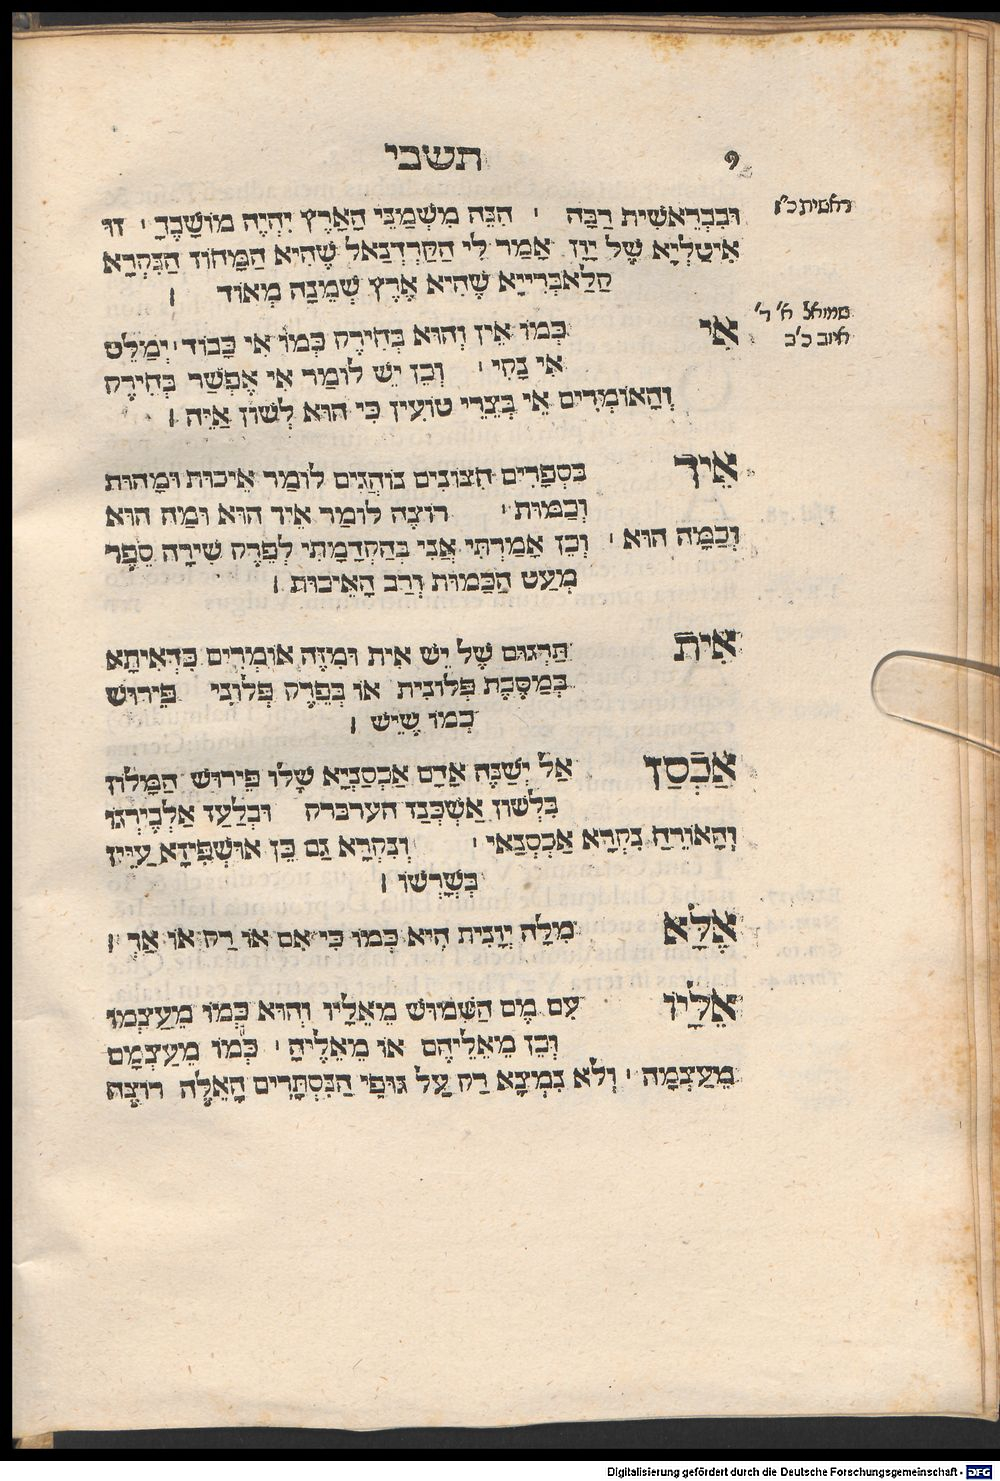 תשבי
9
ראשית כ"ז
וּבִבְרֵאשִׁית רַבָּה ׳ הִנֵּה מִשְׁמַנֵּי הָאָרֶץ יִהְיֶה מוֹשָׁבֶךָ ׳ זוֹ
אִיטַלְיָא שֶׁל יָוָן ׳ אָמַר לִי הַקַּרְדְנַאל שֶׁהִיא הַמָּחוֹז הַנִּקְרָא
קַלַאבְּרִייָא שֶׁהִיא אֶרֶץ שְׁמֵנָה מְאוֹד ׀
שמואל א' ד'
איוב כ'ב
אִי כְּמוֹ אֵין וְהוּא בְּחִירֶק כְּמוֹ אִי כָּבוֹד ׳ יְמַלֵּט
אִי נָקִי ׳ וְכֵן יֵשׁ לוֹמַר אִי אֶפְשַׁר בְּחִירֶק
וְהָאוֹמְרִים אֵי בְּצֵרֵי טוֹעִין כִּי הוּא לְשׁוֹן אַיֵּה ׀
אֵיךְ בִּסְפָרִים חִצּוֹנִים נוֹהֲגִים לוֹמַר אֵיכוּת וּמָהוּת
וְכַמּוּת ׳ רוֹצֶה לוֹמַר אֵיךְ הוּא וּמַה הוּא
וְכַמָּה הוּא ׳ וְכֵן אָמַרְתִּי אֲנִי בְּהַקְדָמָתִי לְפֶרֶק שִׁירָה סֵפֶר
מְעַט הַכַּמּוּת וְרַב הָאֵיכוּת ׀
אִית תַּרְגּוּם שֶׁל יֵשׁ אִית וּמִזֶּה אוֹמְרִים כִּדְאִיתָא
בְּמַסֶּכֶת פְּלוֹנִית אוֹ בְּפֶרֶק פְּלוֹנִי ׳ פֵּירוּשׁ
כְּמוֹ שֶׁיֵּשׁ ׀
אַכְסַן אַל יְשַׁנֶּה אָדָם אַכְסַנְיָא שֶׁלוֹ פֵּירוּשׁ הַמָּלוֹן
בִּלְשׁוֹן אַשְׁכְּנַז הערברק וּבְלַעַז אַלְבֶּירְגוֹ
וְהָאוֹרֵחַ נִקְרָא אַכְסְנַאי ׳ וְנִקְרָא גַם כֵּן אוּשְׁפִּיזָא עַיֵּין
בְּשָׁרְשׁוֹ ׀
אֶלָּא מִלָּה יְוָנִית הִיא כְּמוֹ כִּי אִם אוֹ רַק אוֹ אַךְ ׀
אֵלָיו עִם מֶם הַשִּׁמּוּשׁ מֵאֵלָיו וְהוּא כְּמוֹ מֵעַצְמוֹ
וְכֵן מֵאֵלֵיהֶם אוֹ מֵאֵלֶיהָ ׳ כְּמוֹ מֵעַצְמָם
מֵעַצְמָהּ ׳ וְלֹא נִמְצָא רַק עַל גּוּפֵי הַנִּסְתָּרִים הָאֵלֶּה רוֹצֶה
Digitalisierung gefördert durch die Deutsche Forschungsgemeinschaft - DFG